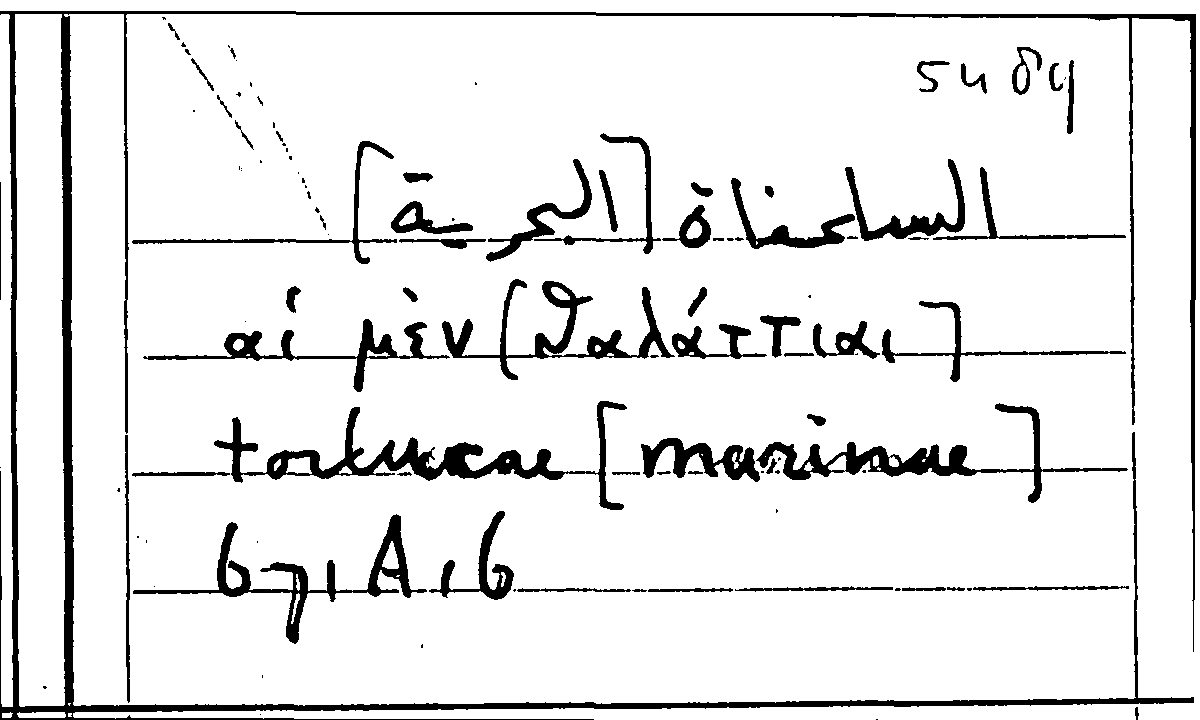 السلحفاة [البحرية]
αἱ μὲν [θαλάττιαι]
tortucae [marinae]
671A16